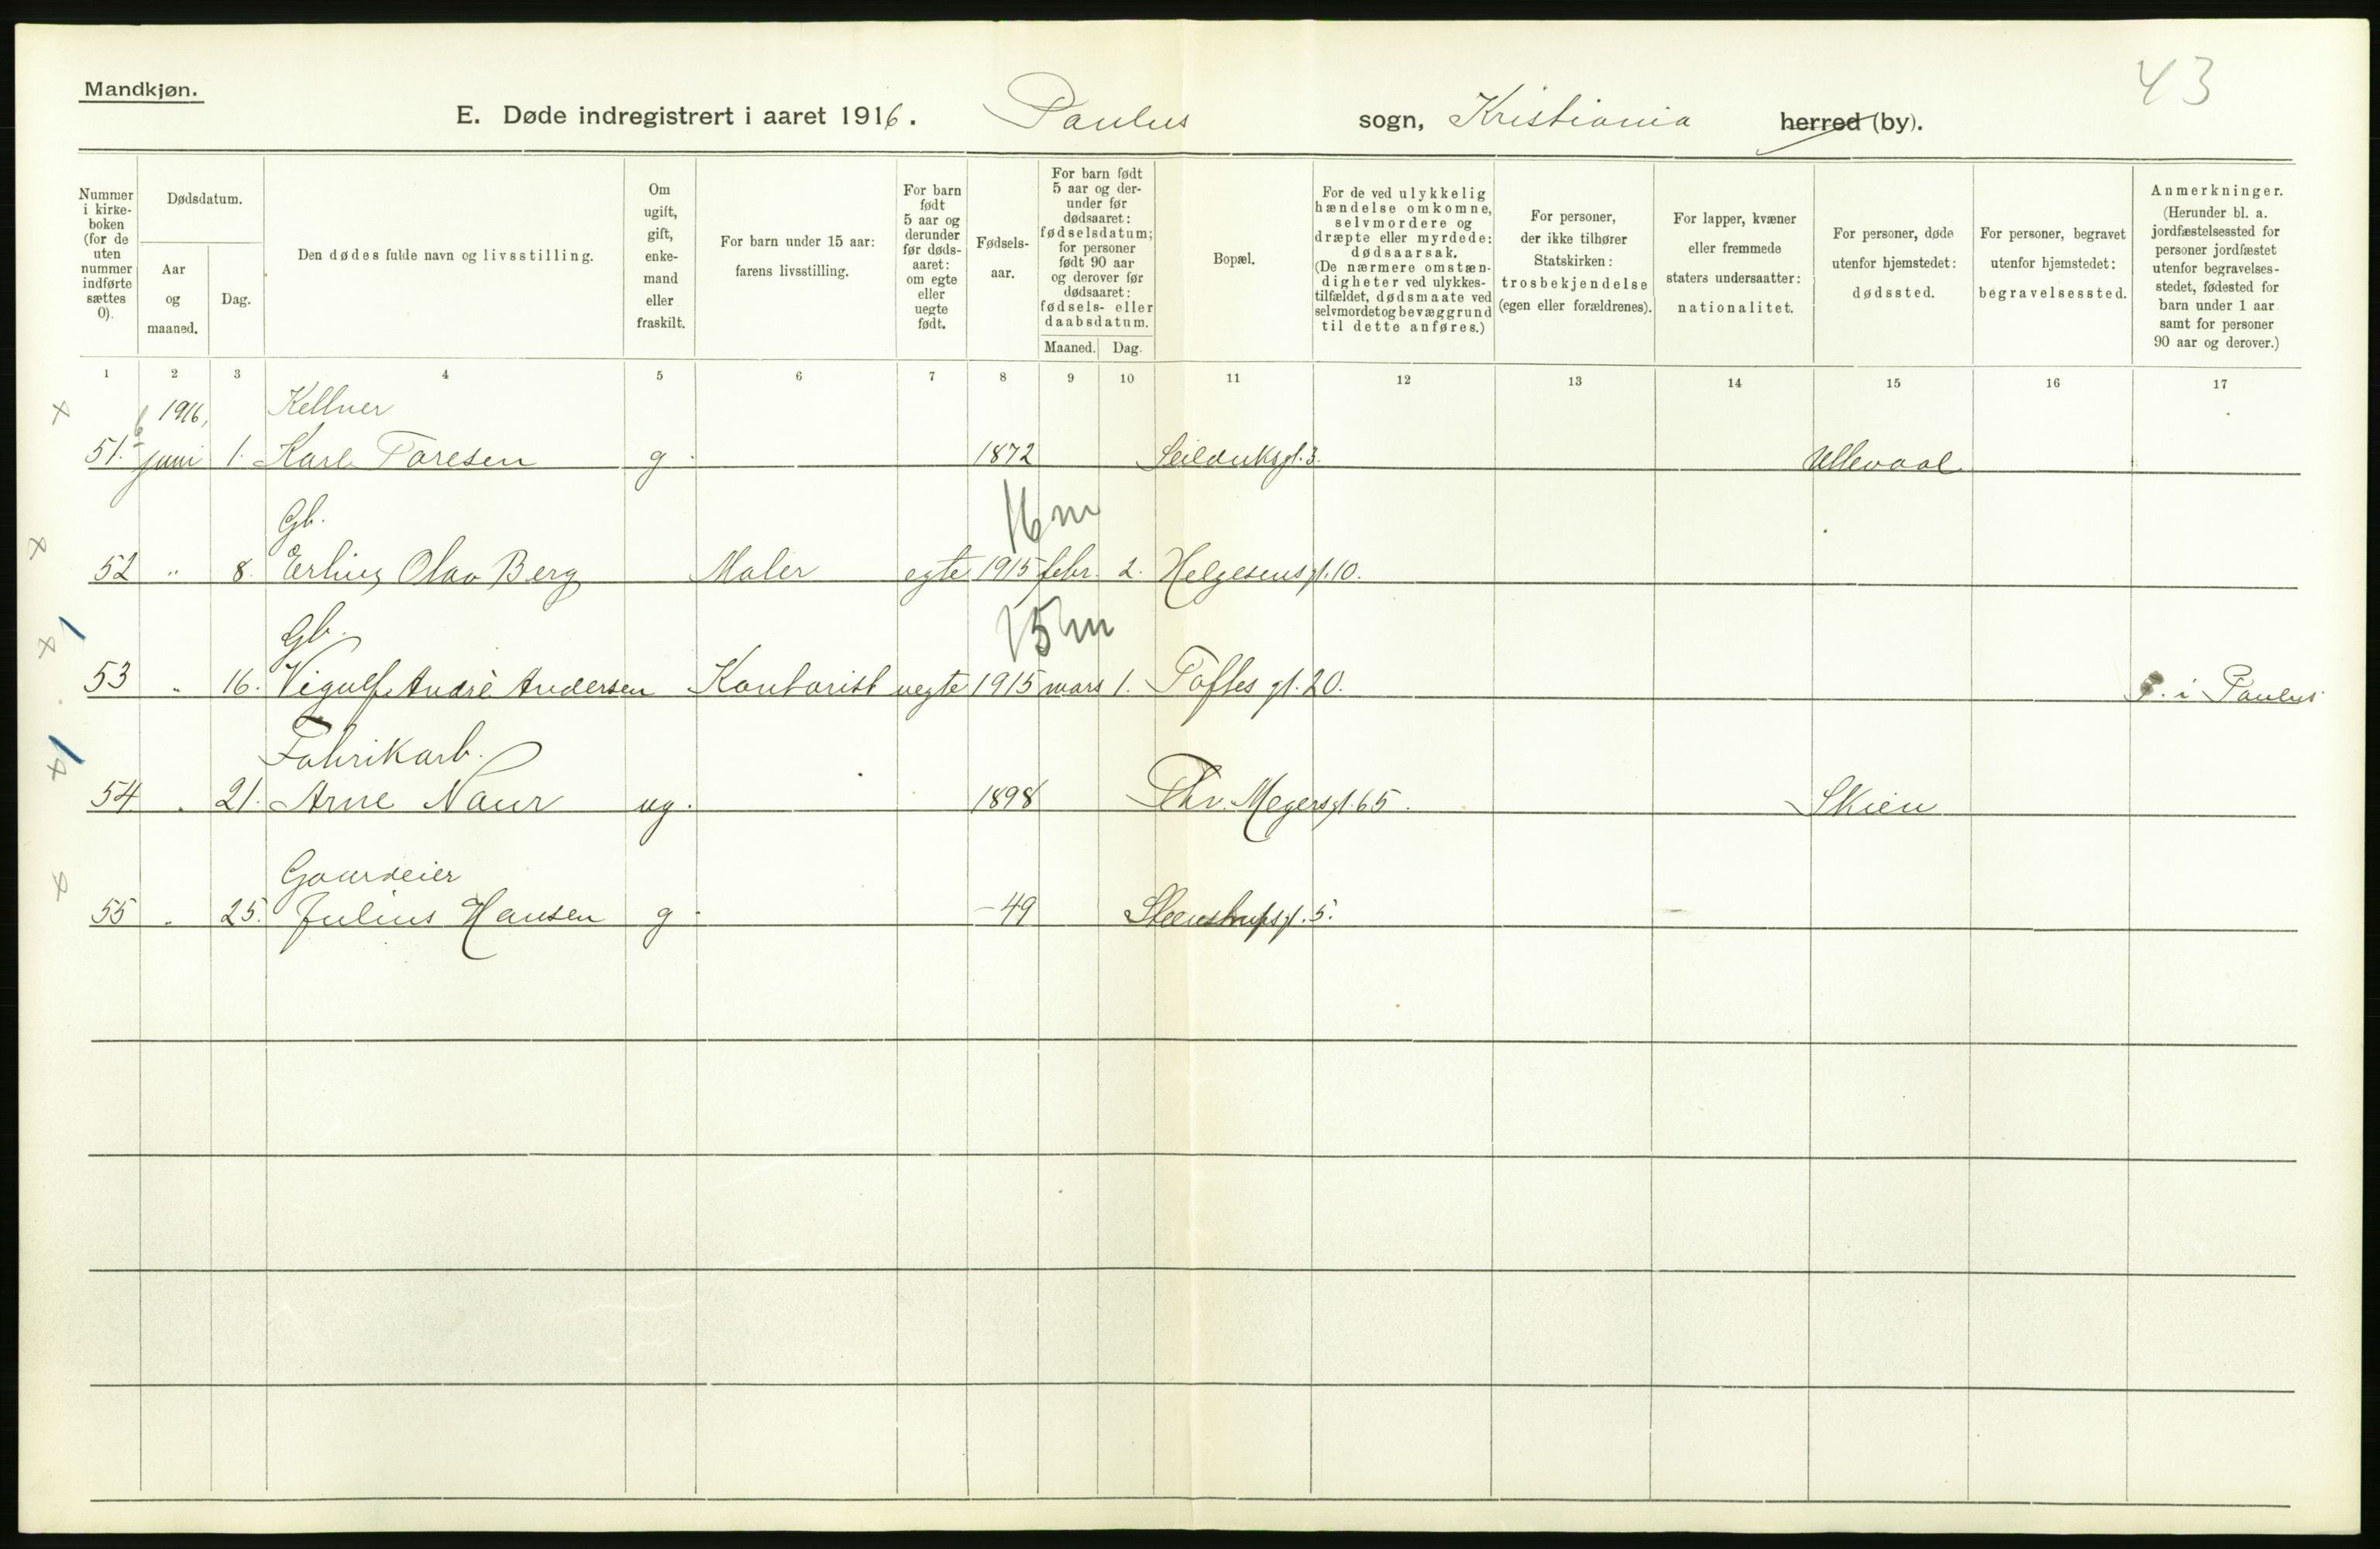 43
Mandkjøn.
E. Døde indregistrert i aaret 1916. Paulus sogn, Kristiania herred (by).
Nummer i kirkeboken (for de uten nummer indførte sættes 0).
Dødsdatum.
Aar og maaned.
Dag.
Den dødes fulde navn og livsstilling.
Om ugift, gift, enkemand eller fraskilt.
For barn under 15 aar: farens livsstilling.
For barn født 5 aar og derunder før dødsaaret: om egte eller uegte født.
Fødselsaar.
For barn født 5 aar og derunder før dødsaaret: fødselsdatum; for personer født 90 aar og derover før dødsaaret: fødsels- eller daabsdatum.
Maaned. Dag.
Bopæl.
For de ved ulykkelig hændelse omkomne, selvmordere og dræpte eller myrdede: dødsaarsak. (De nærmere omstændigheter ved ulykkestilfældet, dødsmaate ved selvmordet og bevæggrund til dette anføres.)
For personer, der ikke tilhører Statskirken: trosbekjendelse (egen eller forældrenes).
For lapper, kvæner eller fremmede staters undersaatter: nationalitet.
For personer, døde utenfor hjemstedet: dødssted.
For personer, begravet utenfor hjemstedet: begravelsessted.
Anmerkninger. (Herunder bl. a. jordfæstelsessted for personer jordfæstet utenfor begravelsesstedet, fødested for barn under 1 aar samt for personer 90 aar og derover.)
1 2 3 4 5 6 7 8 9 10 11 12 13 14 15 16 17
x 1916, Kellner
6
51. juni 1. Karl Toresen g. 1872 Seilduksgt. 3. Ullevaal
Gb. 16 m
x 52 " 8. Erling Olav Berg Maler egte 1915 febr. 2. Helgesensgt. 10.
1 Gb. 15 m
x 53 " 16. Vigulf André Andersen Kontorist uegte 1915 mars 1. Toftes gt. 20. i Paulus
1 Fabrikarb.
x 54 " 21. Arne Naur ug. 1898 Thv. Meyersgt. 65. Skien
Gaardeier
x 55 " 25. Julius Hansen g. -49 Steenstrupsgt. 5.